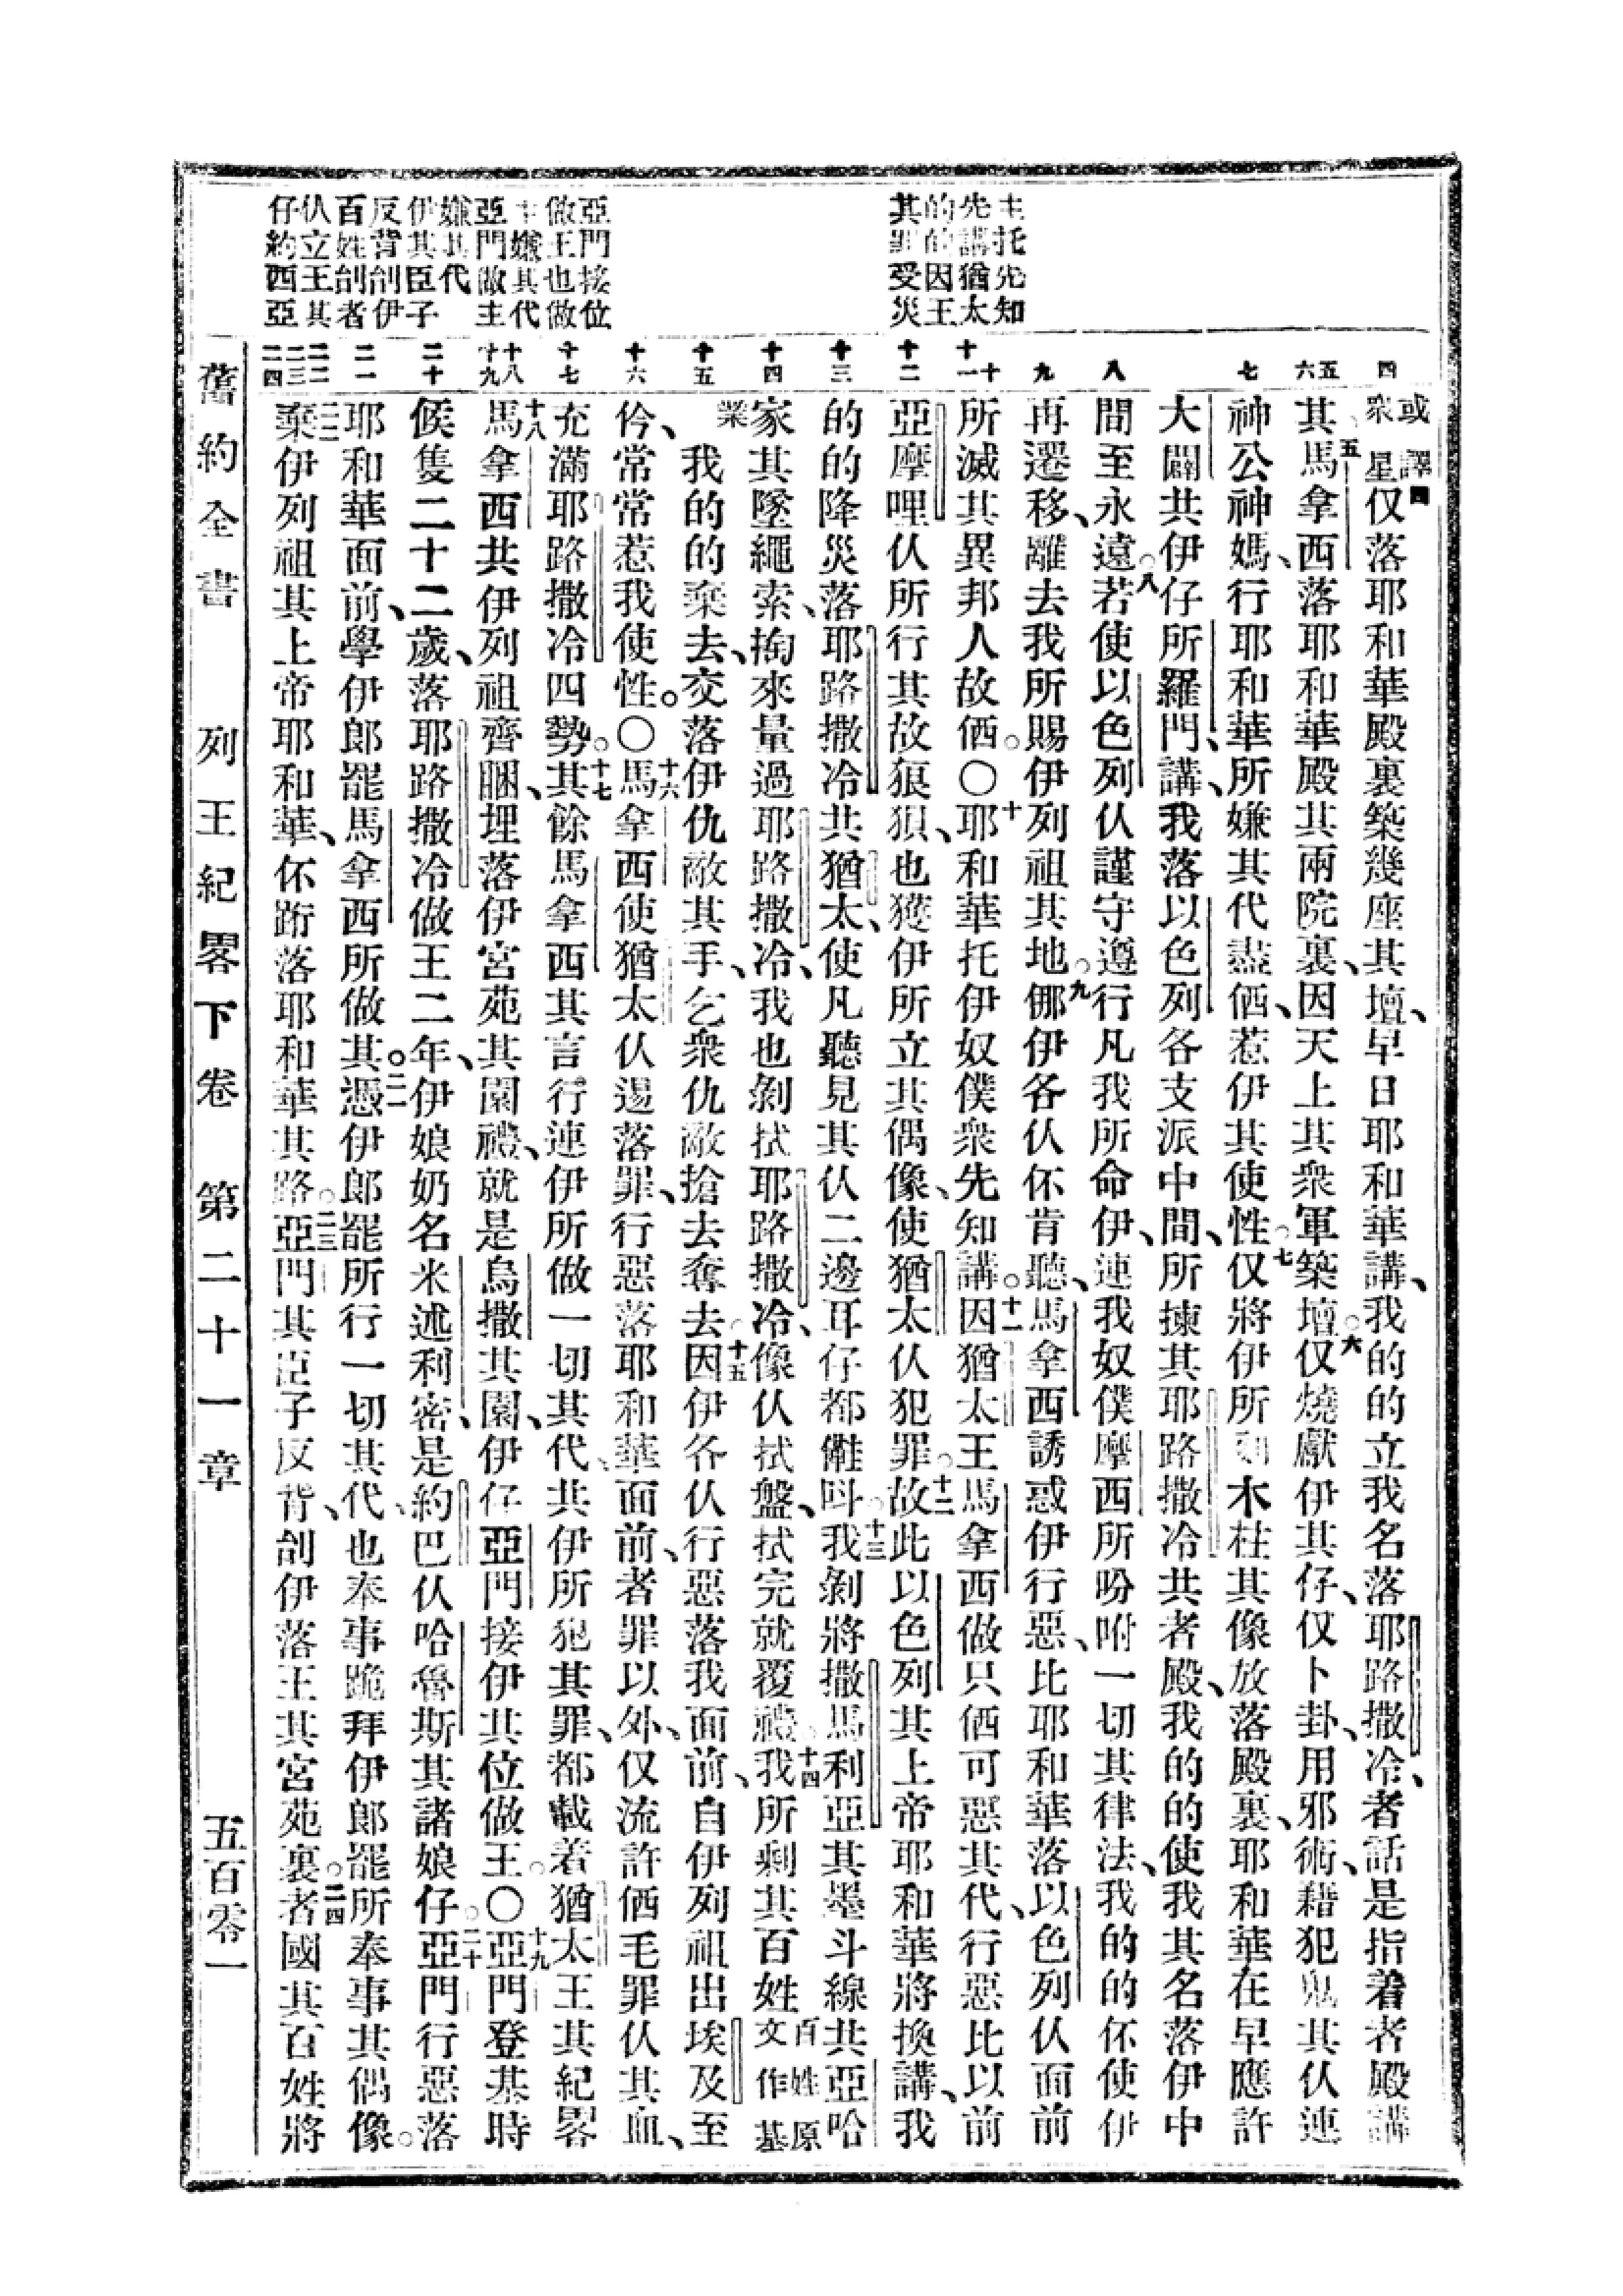 主托先知
先講猶太
的的因王
其罪受災
亞門接位
做王也做
主嫌其代
亞門做主
嫌其代
伊其臣子
反背刣伊
百姓刣者
仈立王其
仔約西亞
四
五
六
七
八
九
十
十一
十二
十三
十四
十五
十六
十七
十八
十九
二十
二一
二二
二三
二四
或譯衆星四仅落耶和華殿裏築幾座其壇、早日耶和華講、我的的立我名落耶路撒冷、者話是指着者殿講
其五馬拿西落耶和華殿其兩院裏、因天上其衆軍築壇。六仅燒獻伊其仔、仅卜卦、用邪術、藉犯鬼其仈連
神公神媽、行耶和華所嫌其代盡㐵、惹伊其使性。七仅將伊所木柱其像放落殿裏、耶和華在早應許
大闢共伊仔所羅門、講、我落以色列各支派中間、所揀其耶路撒冷共者殿、我的的使我其名落伊中
間至永遠。八若使以色列仈謹守遵行凡我所命伊、連我奴僕摩西所吩咐一切其律法、我的的伓使伊
再遷移、離去我所賜伊列祖其地。九㑚伊各仈伓肯聽、馬拿西誘惑伊行惡、比耶和華落以色列仈面前
所滅其異邦人故㐵。〇十耶和華托伊奴僕衆先知講。十一因猶太王馬拿西做只㐵可惡其代、行惡比以前
亞摩哩仈所行其故狠狽、也獲伊所立其偶像、使猶太仈犯罪。十二故此以色列其上帝耶和華將換講、我
的的降災落耶路撒冷共猶太、使凡聽見其仈二邊耳仔都㒓叫。十三我剝將撒馬利亞其墨斗線共亞哈
家其墜繩索、掏來量過耶路撒冷、我也剝拭耶路撒冷、像仈拭盤、拭完就覆禮。十四我所剩其百姓百姓原文作基
業我的的棄去、交落伊仇敵其手、乞衆仇敵搶去奪去。十五因伊各仈行惡落我面前、自伊列祖出埃及至
伶、常常惹我使性。〇十六馬拿西使猶太仈逿落罪、行惡落耶和華面前、者罪以外、仅流許㐵乇罪仈其血、
充滿耶路撒冷四勢。十七其餘馬拿西其言行連伊所做一切其代、共伊所犯其罪、都載着猶太王其紀畧
十八馬拿西共伊列祖齊睏、埋落伊宮苑其園禮、就是烏撒其園、伊仔亞門接伊其位做王。〇十九亞門登基時
候隻二十二歲、落耶路撒冷做王二年、伊娘奶名米述利密、是約巴仈哈魯斯其諸娘仔。二十亞門行惡落
耶和華面前、學伊郎罷馬拿西所做其。二一憑伊郎罷所行一切其代、也奉事跪拜伊郎罷所奉事其偶像。
二二棄伊列祖其上帝耶和華、伓跻落耶和華其路。二三亞門其臣子反背、刣伊落王其宮苑裏。二四者國其百姓將
舊約全書　列王紀畧下卷　第二十一章　五百零一